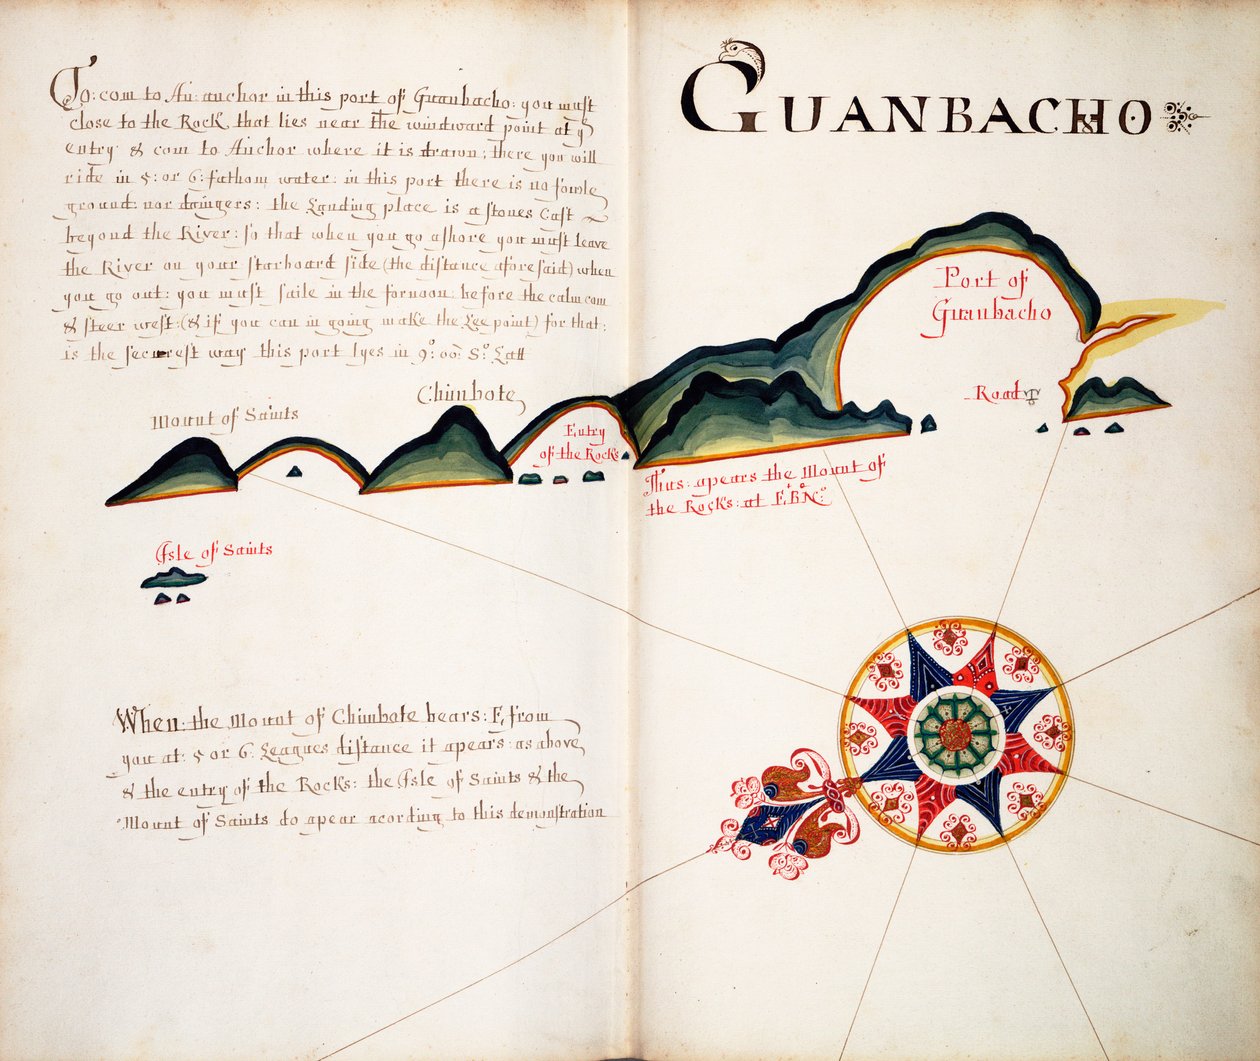 To: com to An: anchor in this port of Guanbacho: you must
close to the Rock, that lies near the windward point at yͤ
entry & com to Anchor where it is drawn; there you will
ride in 5: or 6: fathom water: in this port there is no fowle
ground: nor dangers: the Landing place is a stones Cast
beyond the River: so that when you go ashore you must leave
the River on your starboard side (the distance aforesaid) when
you go out: you must saile in the fornoon: before the calm com
& steer west: (& if you can in going make the Lee point) for that:
is the securest way this port lyes in 9°: 00: S° Latt
GUANBACHO
Port of
Guanbacho
Road
Chimbote
Mount of Saints
Entry
of the Rocks
Thus: apears the Mount of
the Rocks: at E: B N:
Isle of Saints
When: the Mount of Chimbote bears: E, from
you at: 5 or 6: Leagues distance it apears: as above
& the entry of the Rocks: the Isle of Saints & the
Mount of Saints do apear acording to this demonstration